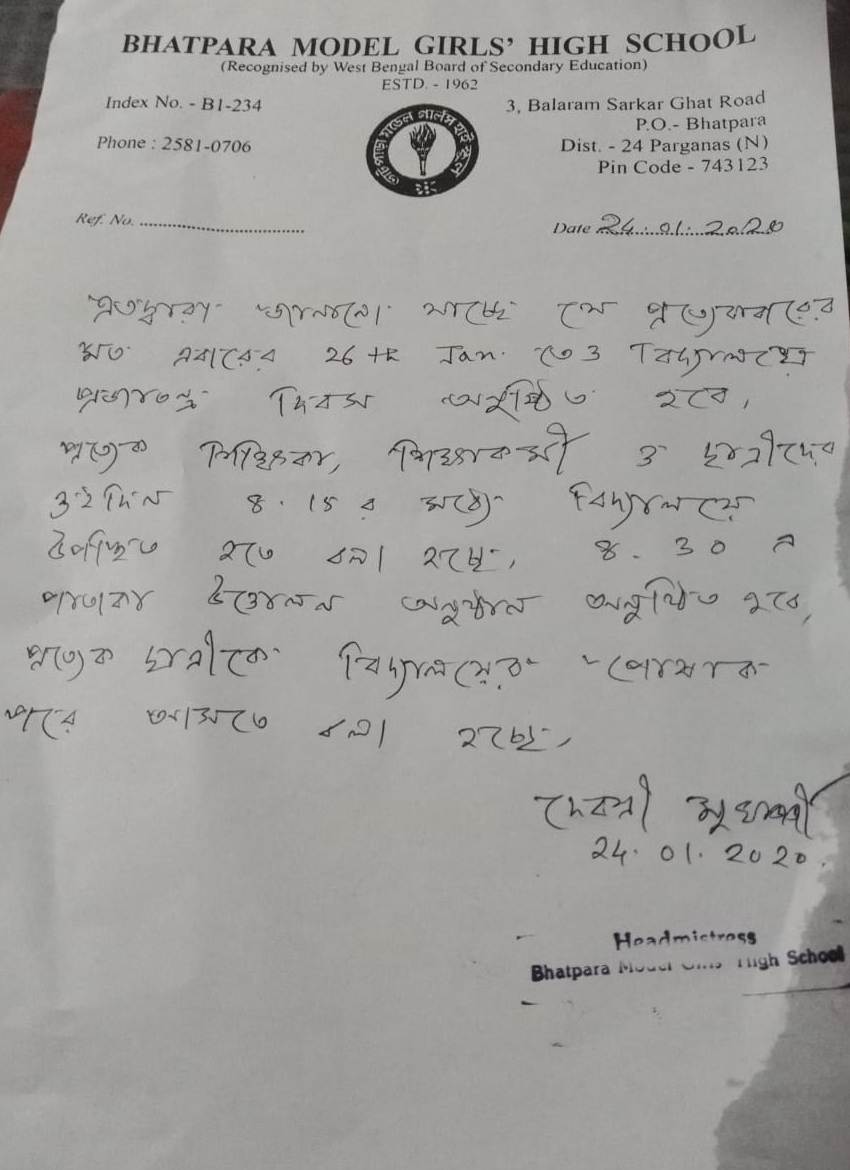 BHATPARA MODEL GIRLS' HIGH SCHOOL
(Recognised by West Bengal Board of Secondary Education)
ESTD. - 1962
Index No. - B1-234
3, Balaram Sarkar Ghat Road
P.O.- Bhatpara
Phone : 2581-0706
Dist. - 24 Parganas (N)
Pin Code - 743123
ভাটপাড়া মডেল গার্লস হাই স্কুল
Ref. No. ....................................
Date 24.01.2020
এতদ্বারা জানানো যাচ্ছে যে প্রত্যেকবারের
মত এবারের 26 th Jan. তেও বিদ্যালয়ে
প্রজাতন্ত্র দিবস অনুষ্ঠিত হবে,
প্রত্যেক শিক্ষিকা, শিক্ষাকর্মী ও ছাত্রীদের
ওইদিন 8.15 র মধ্যে বিদ্যালয়ে
উপস্থিত হতে বলা হচ্ছে, 8.30 এ
পতাকা উত্তোলন অনুষ্ঠান অনুষ্ঠিত হবে,
প্রত্যেক ছাত্রীকে বিদ্যালয়ের পোষাক
পরে আসতে বলা হচ্ছে,
দেবশ্রী মুখার্জী
24.01.2020.
Headmistress
Bhatpara Model Girls' High School